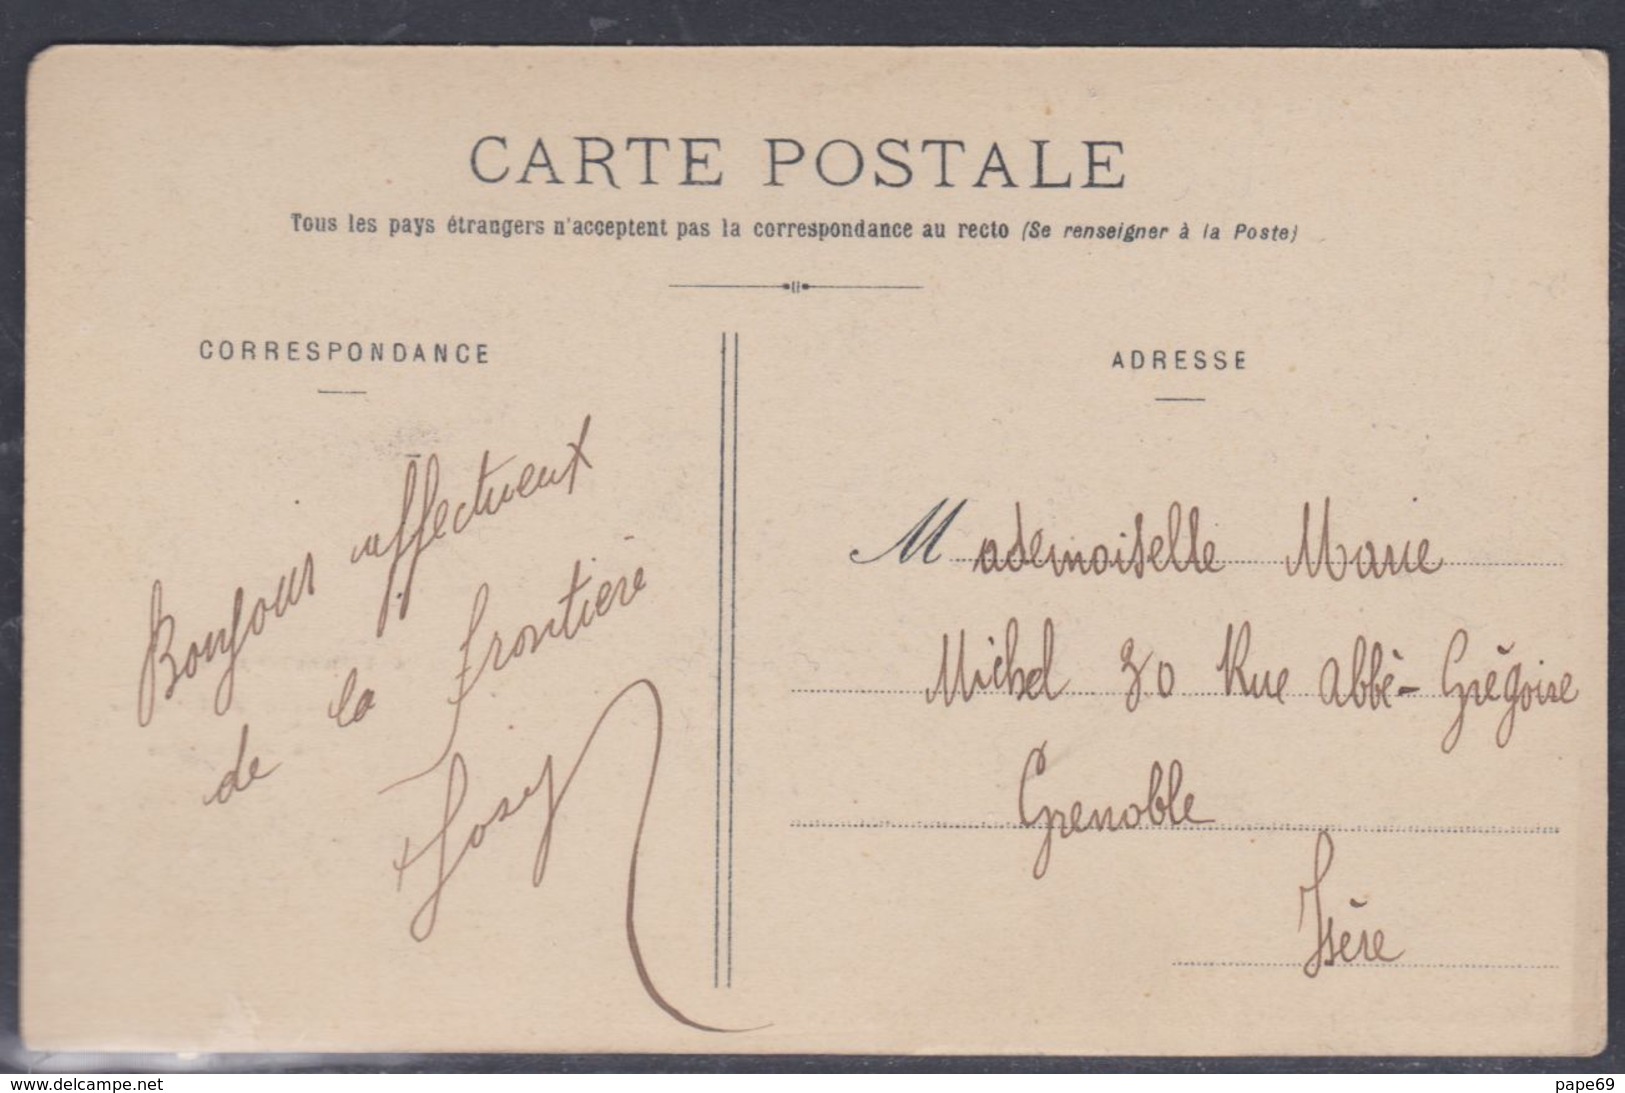 CARTE POSTALE
Tous les pays étrangers n'acceptent pas la correspondance au recto (Se renseigner à la Poste)
CORRESPONDANCE
Bonjour affectueux
de la frontière
Josey
ADRESSE
Mademoiselle Marie
Michel 30 Rue Abbé-Grégoire
Grenoble
Isère
www.delcampe.net
pape69